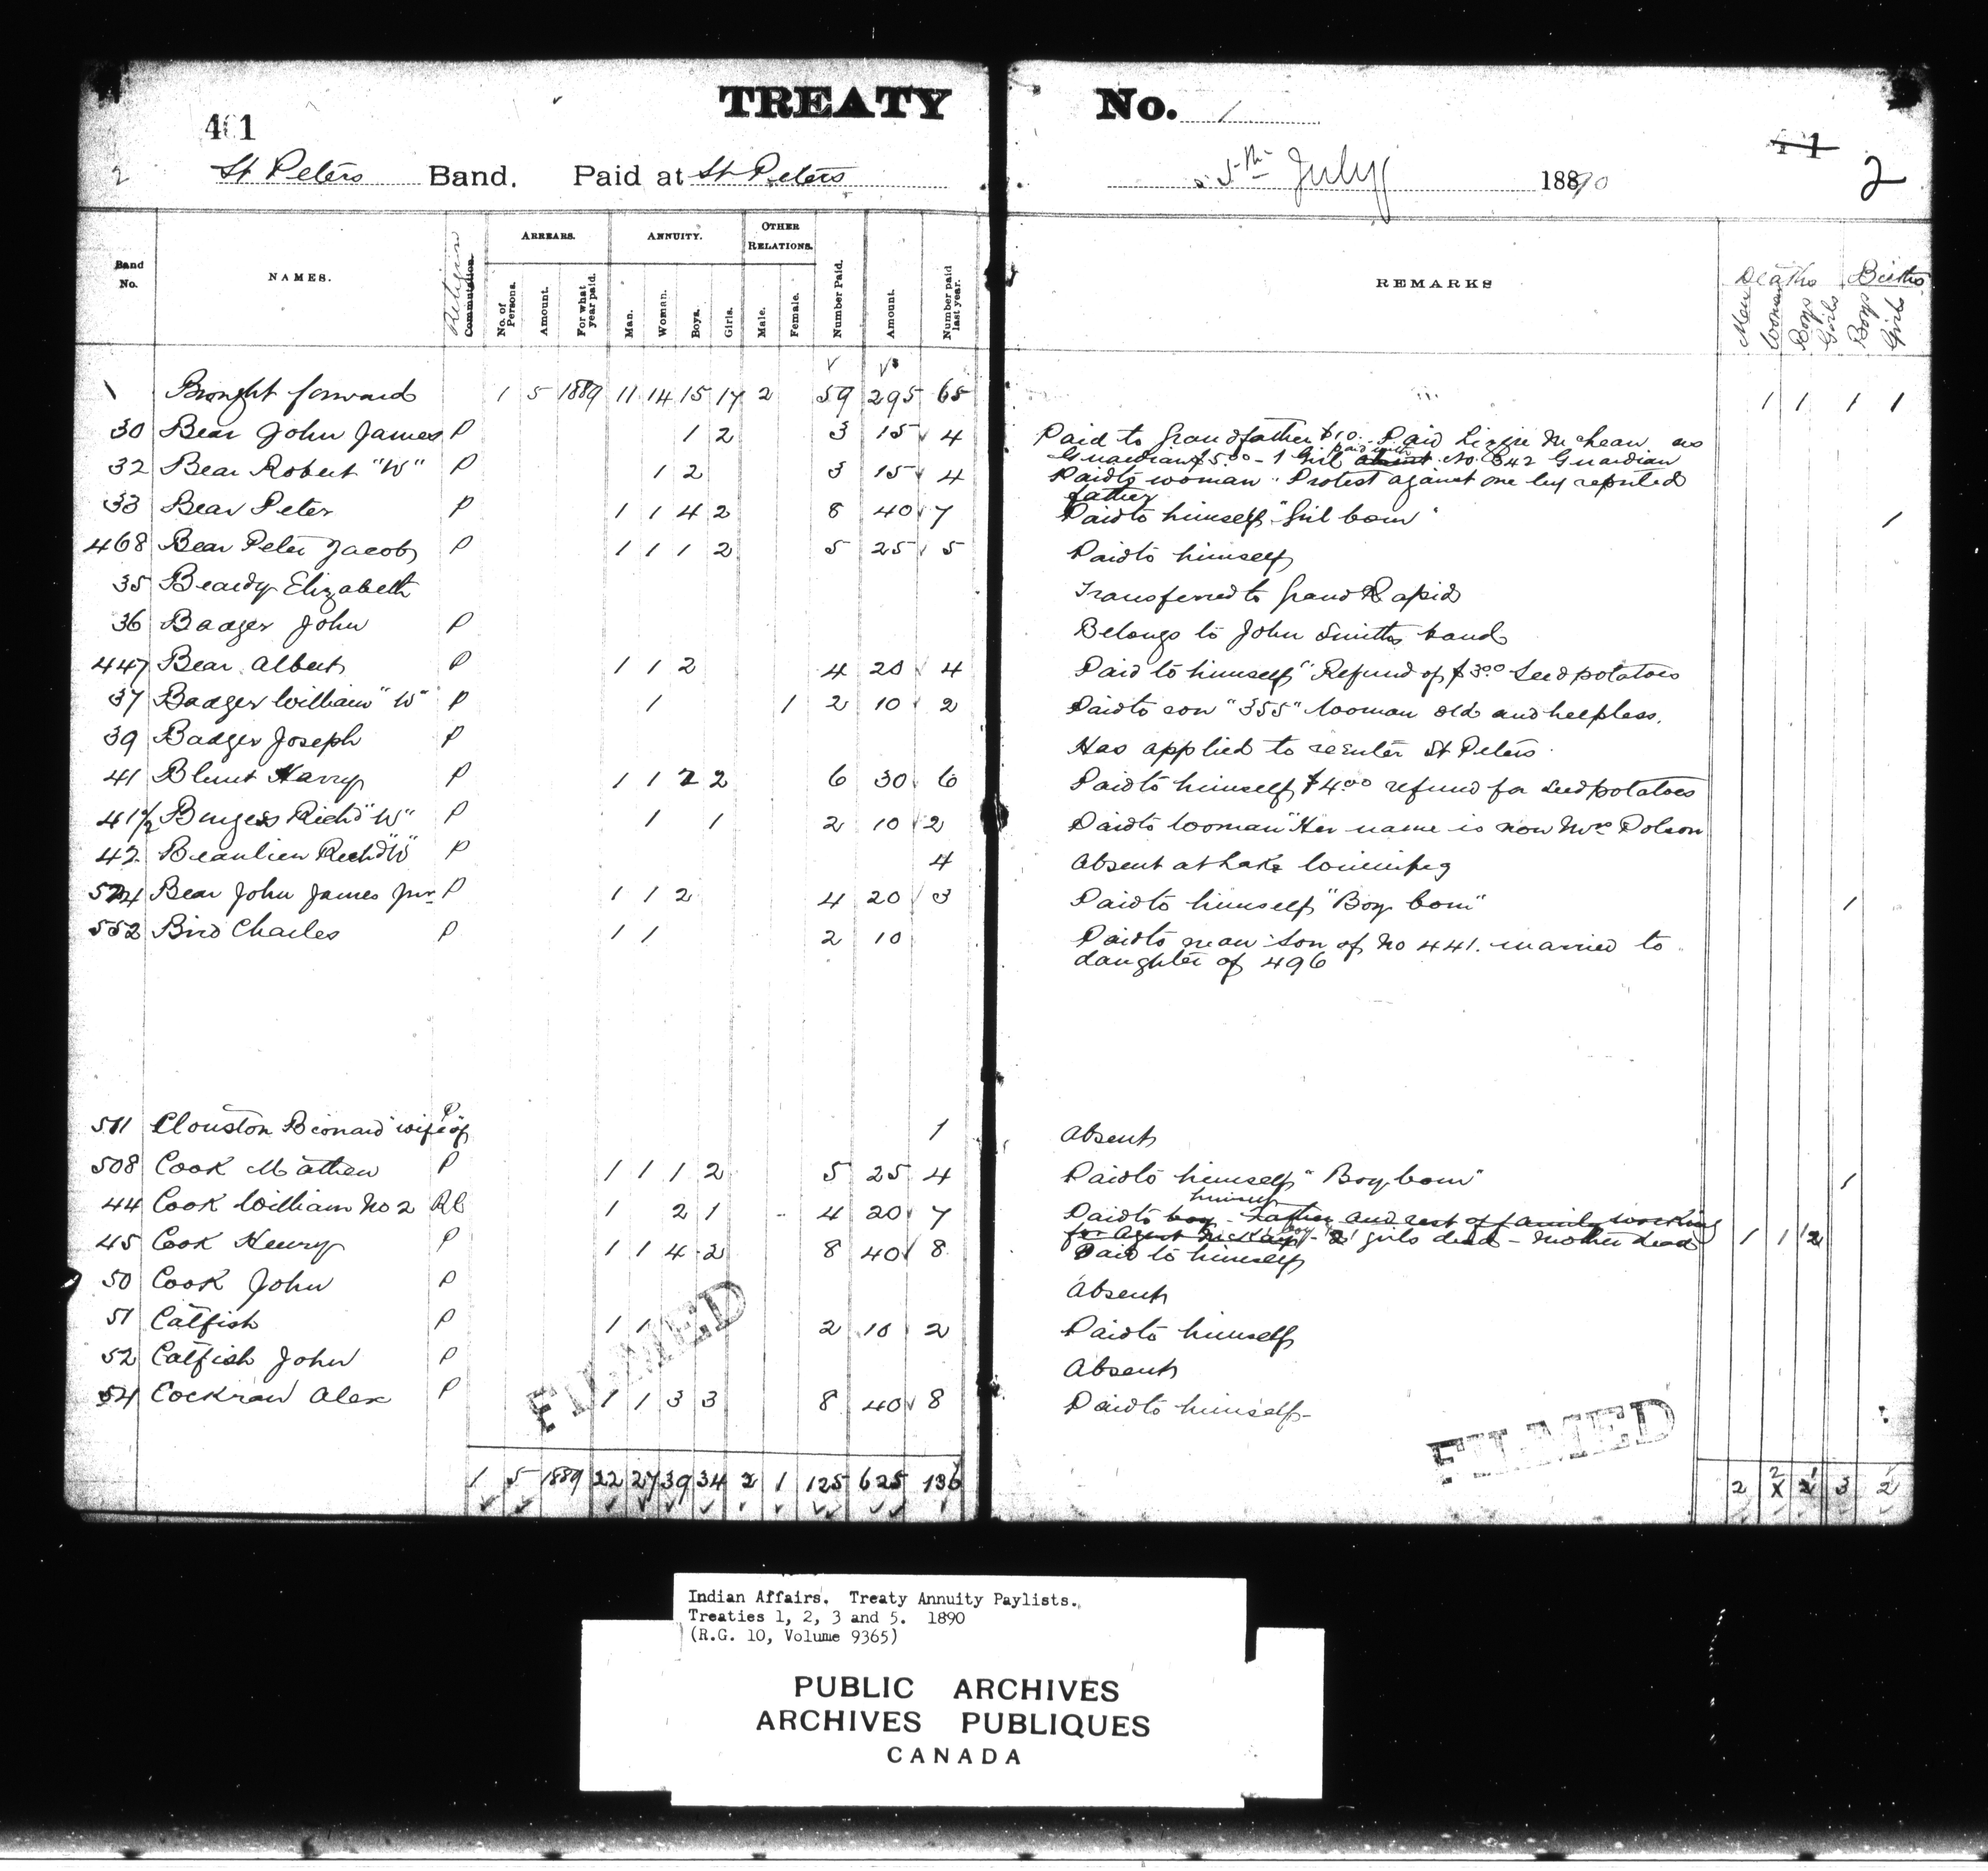 TREATY No. 1
401
11
2 St Peters Band. Paid at St Peters 5th July 1890 2
Band No. NAMES. Religion Commutation. ARREARS. No. of Persons. Amount. For what year paid. ANNUITY. Man. Woman. Boys. Girls. OTHER RELATIONS. Male. Female. Number Paid. Amount. Number paid last year. REMARKS Deaths Men Women Boys Girls Births Boys Girls
Brought forward 1 5 1889 11 14 15 17 2 59 295 65 1 1 1 1
30 Bear John James P 1 2 3 15 4 Paid to Grandfather $10. Paid Lizzie McLean as
Guardian $5.00 - 1 Girl absent paid with No. 342 Guardian
32 Bear Robert "W" P 1 2 3 15 4 Paid to woman. Protest against one boy reputed
father
33 Bear Peter P 1 1 4 2 8 40 7 Paid to himself "Girl born" 1
468 Bear Peter Jacob P 1 1 1 2 5 25 5 Paid to himself
35 Beardy Elizabeth Transferred to Grand Rapid
36 Badger John P Belongs to John Smiths band
447 Bear Albert P 1 1 2 4 20 4 Paid to himself "Refund of $3.00 Seed potatoes
37 Badger William "W" P 1 1 2 10 2 Paid to son "355" Woman old and helpless.
39 Badger Joseph P Has applied to reenter St Peters
41 Blunt Harry P 1 1 2 2 6 30 6 Paid to himself $4.00 refund for Seed potatoes
41 1/2 Burgess Richd "W" P 1 1 2 10 2 Paid to Woman "Her name is now Mrs Polson
42 Beaulieu Richd "W" P 4 Absent at Lake Winnipeg
524 Bear John James Jnr P 1 1 2 4 20 3 Paid to himself "Boy born" 1
552 Bird Charles P 1 1 2 10 Paid to man Son of No 441. married to
daughter of 496
511 Clouston Bernard wife of P 1 Absent
508 Cook Mathew P 1 1 1 2 5 25 4 Paid to himself "Boy born" 1
44 Cook William No 2 RC 1 2 1 4 20 7 Paid to boy himself - Father and rest of family working
for Agent boy 1 girls dead - Mother dead 1 1 2
45 Cook Henry P 1 1 4 2 8 40 8 Paid to himself
50 Cook John P Absent
51 Catfish P 1 1 2 10 2 Paid to himself
52 Catfish John P Absent
54 Cockran Alex P 1 1 3 3 8 40 8 Paid to himself
FILMED
FILMED
1 5 1889 22 27 39 34 2 1 125 625 136 2 2 2 1 3 2
Indian Affairs. Treaty Annuity Paylists.
Treaties 1, 2, 3 and 5. 1890
(R.G. 10, Volume 9365)
PUBLIC ARCHIVES
ARCHIVES PUBLIQUES
CANADA